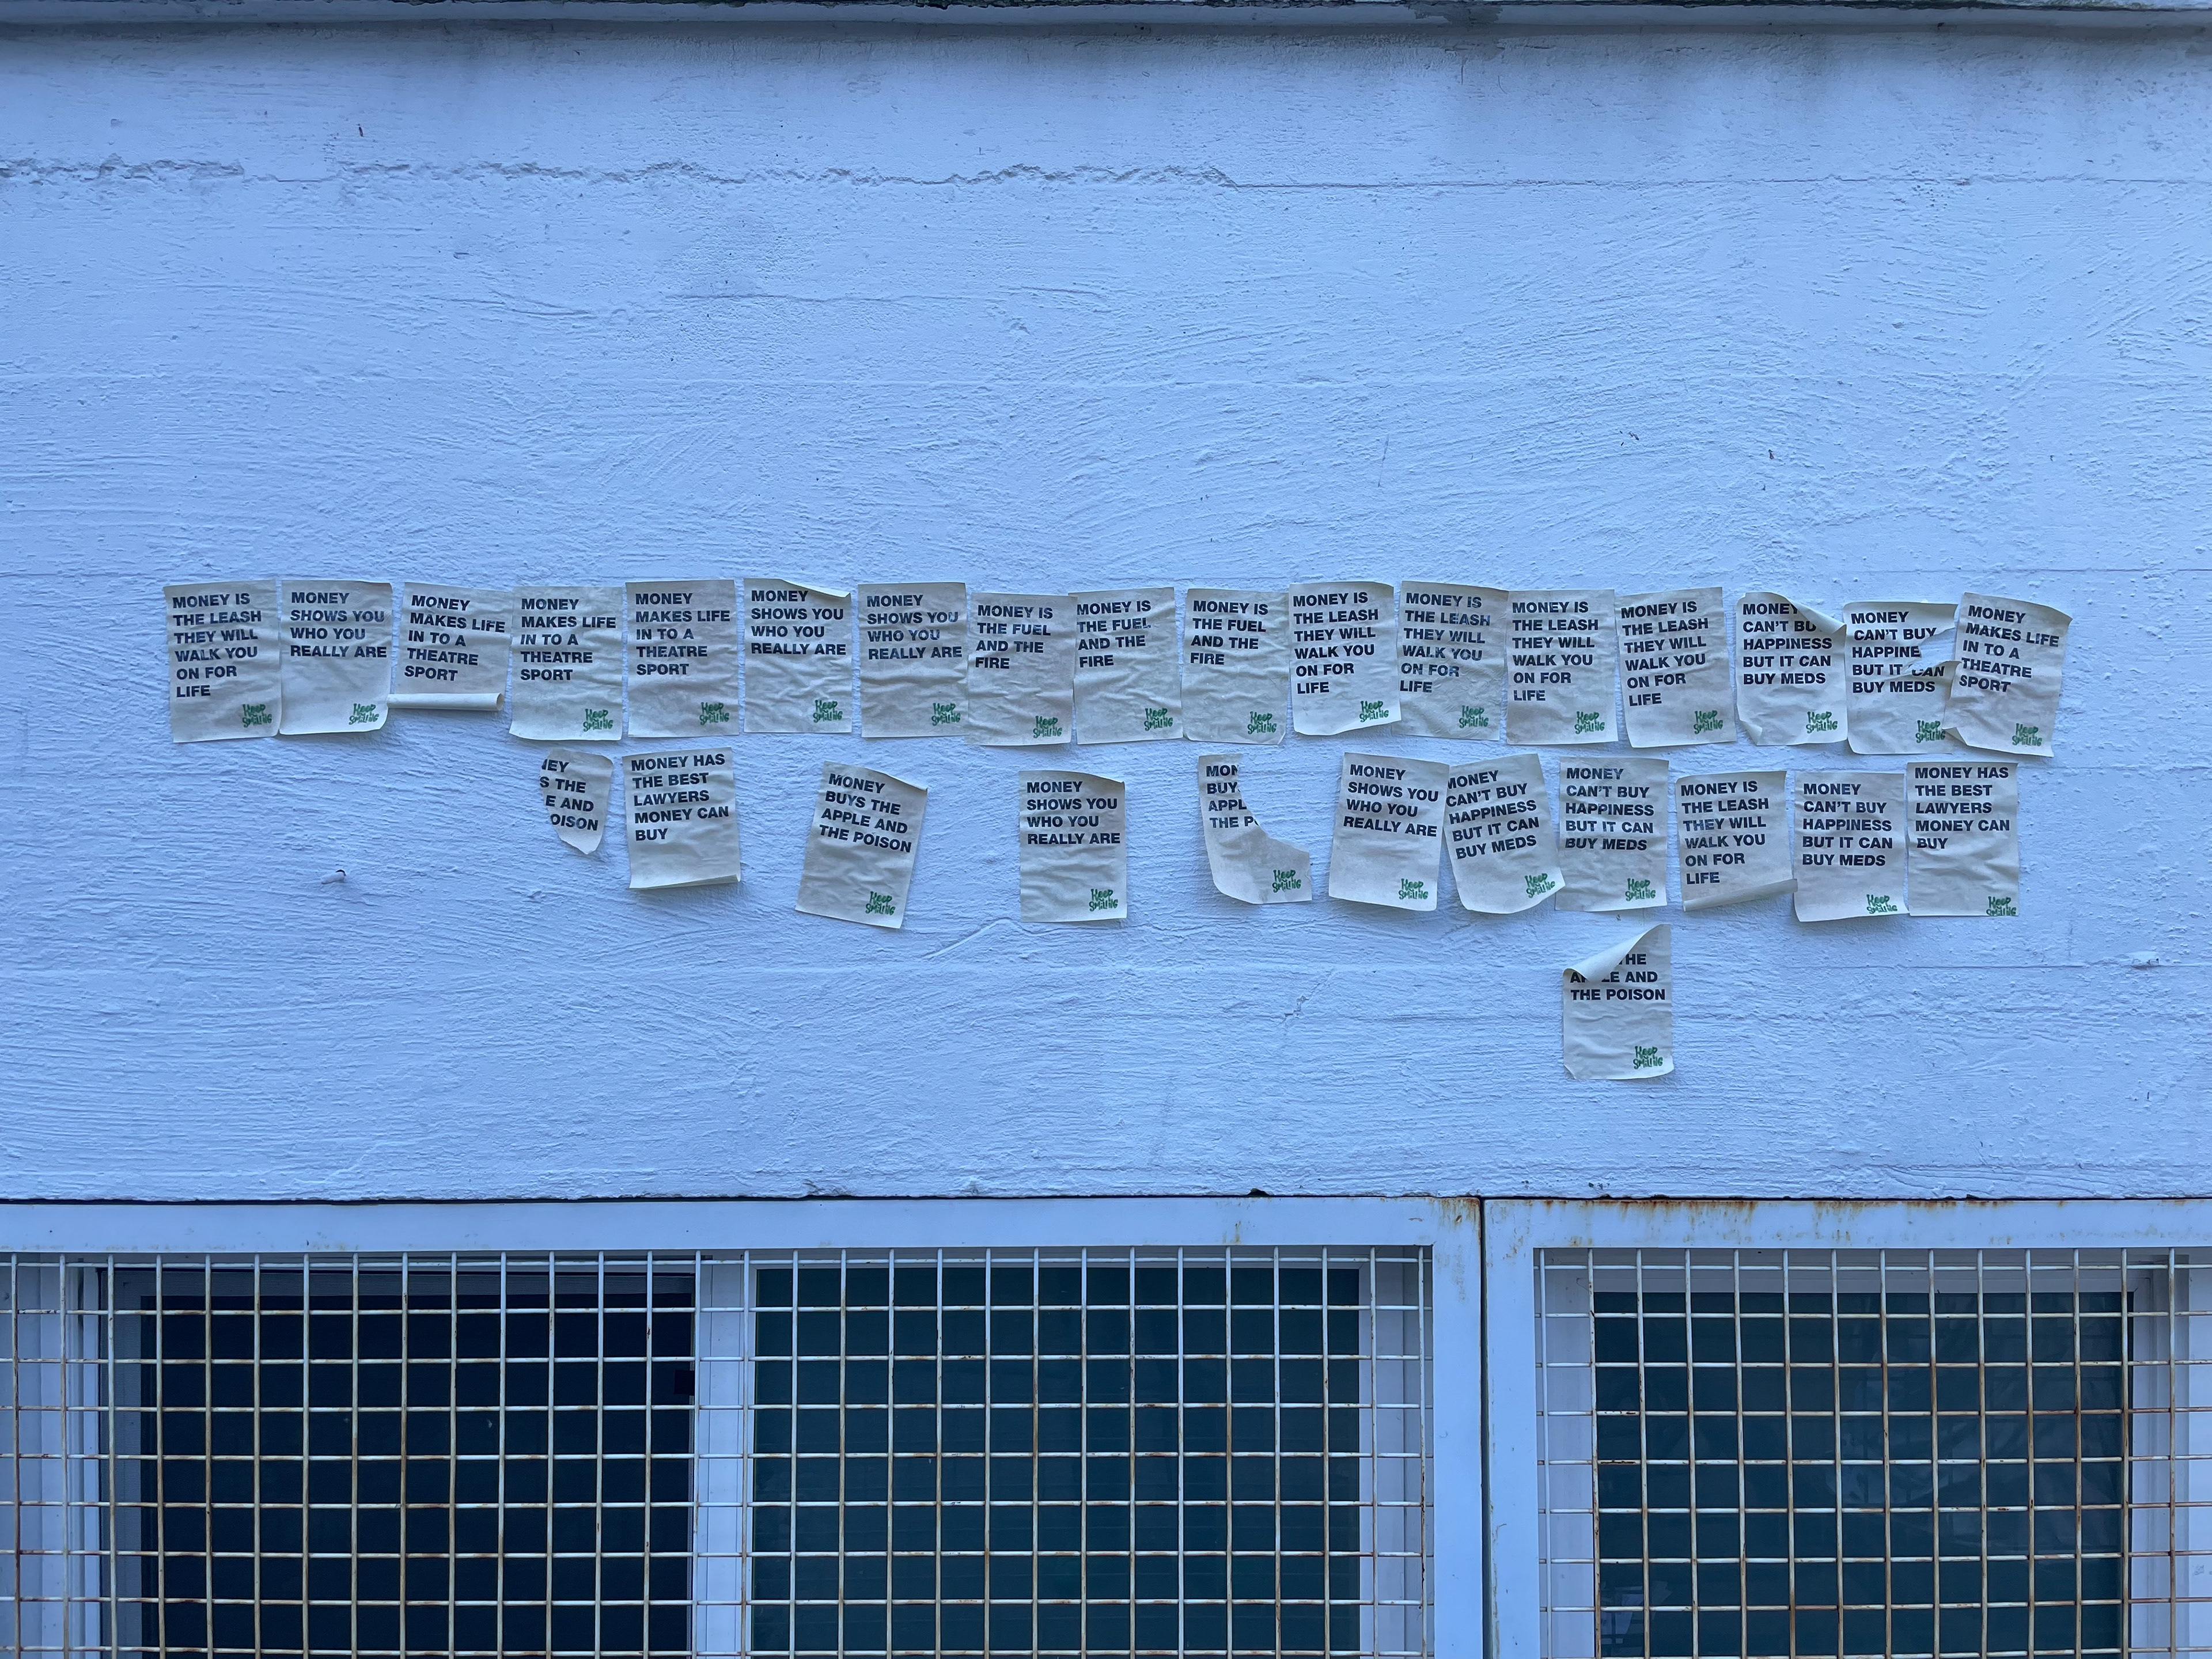 MONEY IS
THE LEASH
THEY WILL
WALK YOU
ON FOR
LIFE
Keep
Smiling
MONEY
SHOWS YOU
WHO YOU
REALLY ARE
Keep
Smiling
MONEY
MAKES LIFE
IN TO A
THEATRE
SPORT
MONEY
MAKES LIFE
IN TO A
THEATRE
SPORT
Keep
Smiling
MONEY
MAKES LIFE
IN TO A
THEATRE
SPORT
Keep
Smiling
MONEY
SHOWS YOU
WHO YOU
REALLY ARE
Keep
Smiling
MONEY
SHOWS YOU
WHO YOU
REALLY ARE
Keep
Smiling
MONEY IS
THE FUEL
AND THE
FIRE
Keep
Smiling
MONEY IS
THE FUEL
AND THE
FIRE
Keep
Smiling
MONEY IS
THE FUEL
AND THE
FIRE
Keep
Smiling
MONEY IS
THE LEASH
THEY WILL
WALK YOU
ON FOR
LIFE
Keep
Smiling
MONEY IS
THE LEASH
THEY WILL
WALK YOU
ON FOR
LIFE
Keep
Smiling
MONEY IS
THE LEASH
THEY WILL
WALK YOU
ON FOR
LIFE
Keep
Smiling
MONEY IS
THE LEASH
THEY WILL
WALK YOU
ON FOR
LIFE
Keep
Smiling
MONEY
CAN'T BU
HAPPINESS
BUT IT CAN
BUY MEDS
Keep
Smiling
MONEY
CAN'T BUY
HAPPINE
BUT IT CAN
BUY MEDS
Keep
Smiling
MONEY
MAKES LIFE
IN TO A
THEATRE
SPORT
Keep
Smiling
NEY
S THE
E AND
OISON
MONEY HAS
THE BEST
LAWYERS
MONEY CAN
BUY
MONEY
BUYS THE
APPLE AND
THE POISON
Keep
Smiling
MONEY
SHOWS YOU
WHO YOU
REALLY ARE
Keep
Smiling
MON
BUY
APPL
THE P
Keep
Smiling
MONEY
SHOWS YOU
WHO YOU
REALLY ARE
Keep
Smiling
MONEY
CAN'T BUY
HAPPINESS
BUT IT CAN
BUY MEDS
Keep
Smiling
MONEY
CAN'T BUY
HAPPINESS
BUT IT CAN
BUY MEDS
Keep
Smiling
MONEY IS
THE LEASH
THEY WILL
WALK YOU
ON FOR
LIFE
MONEY
CAN'T BUY
HAPPINESS
BUT IT CAN
BUY MEDS
Keep
Smiling
MONEY HAS
THE BEST
LAWYERS
MONEY CAN
BUY
Keep
Smiling
THE
AND
THE POISON
Keep
Smiling